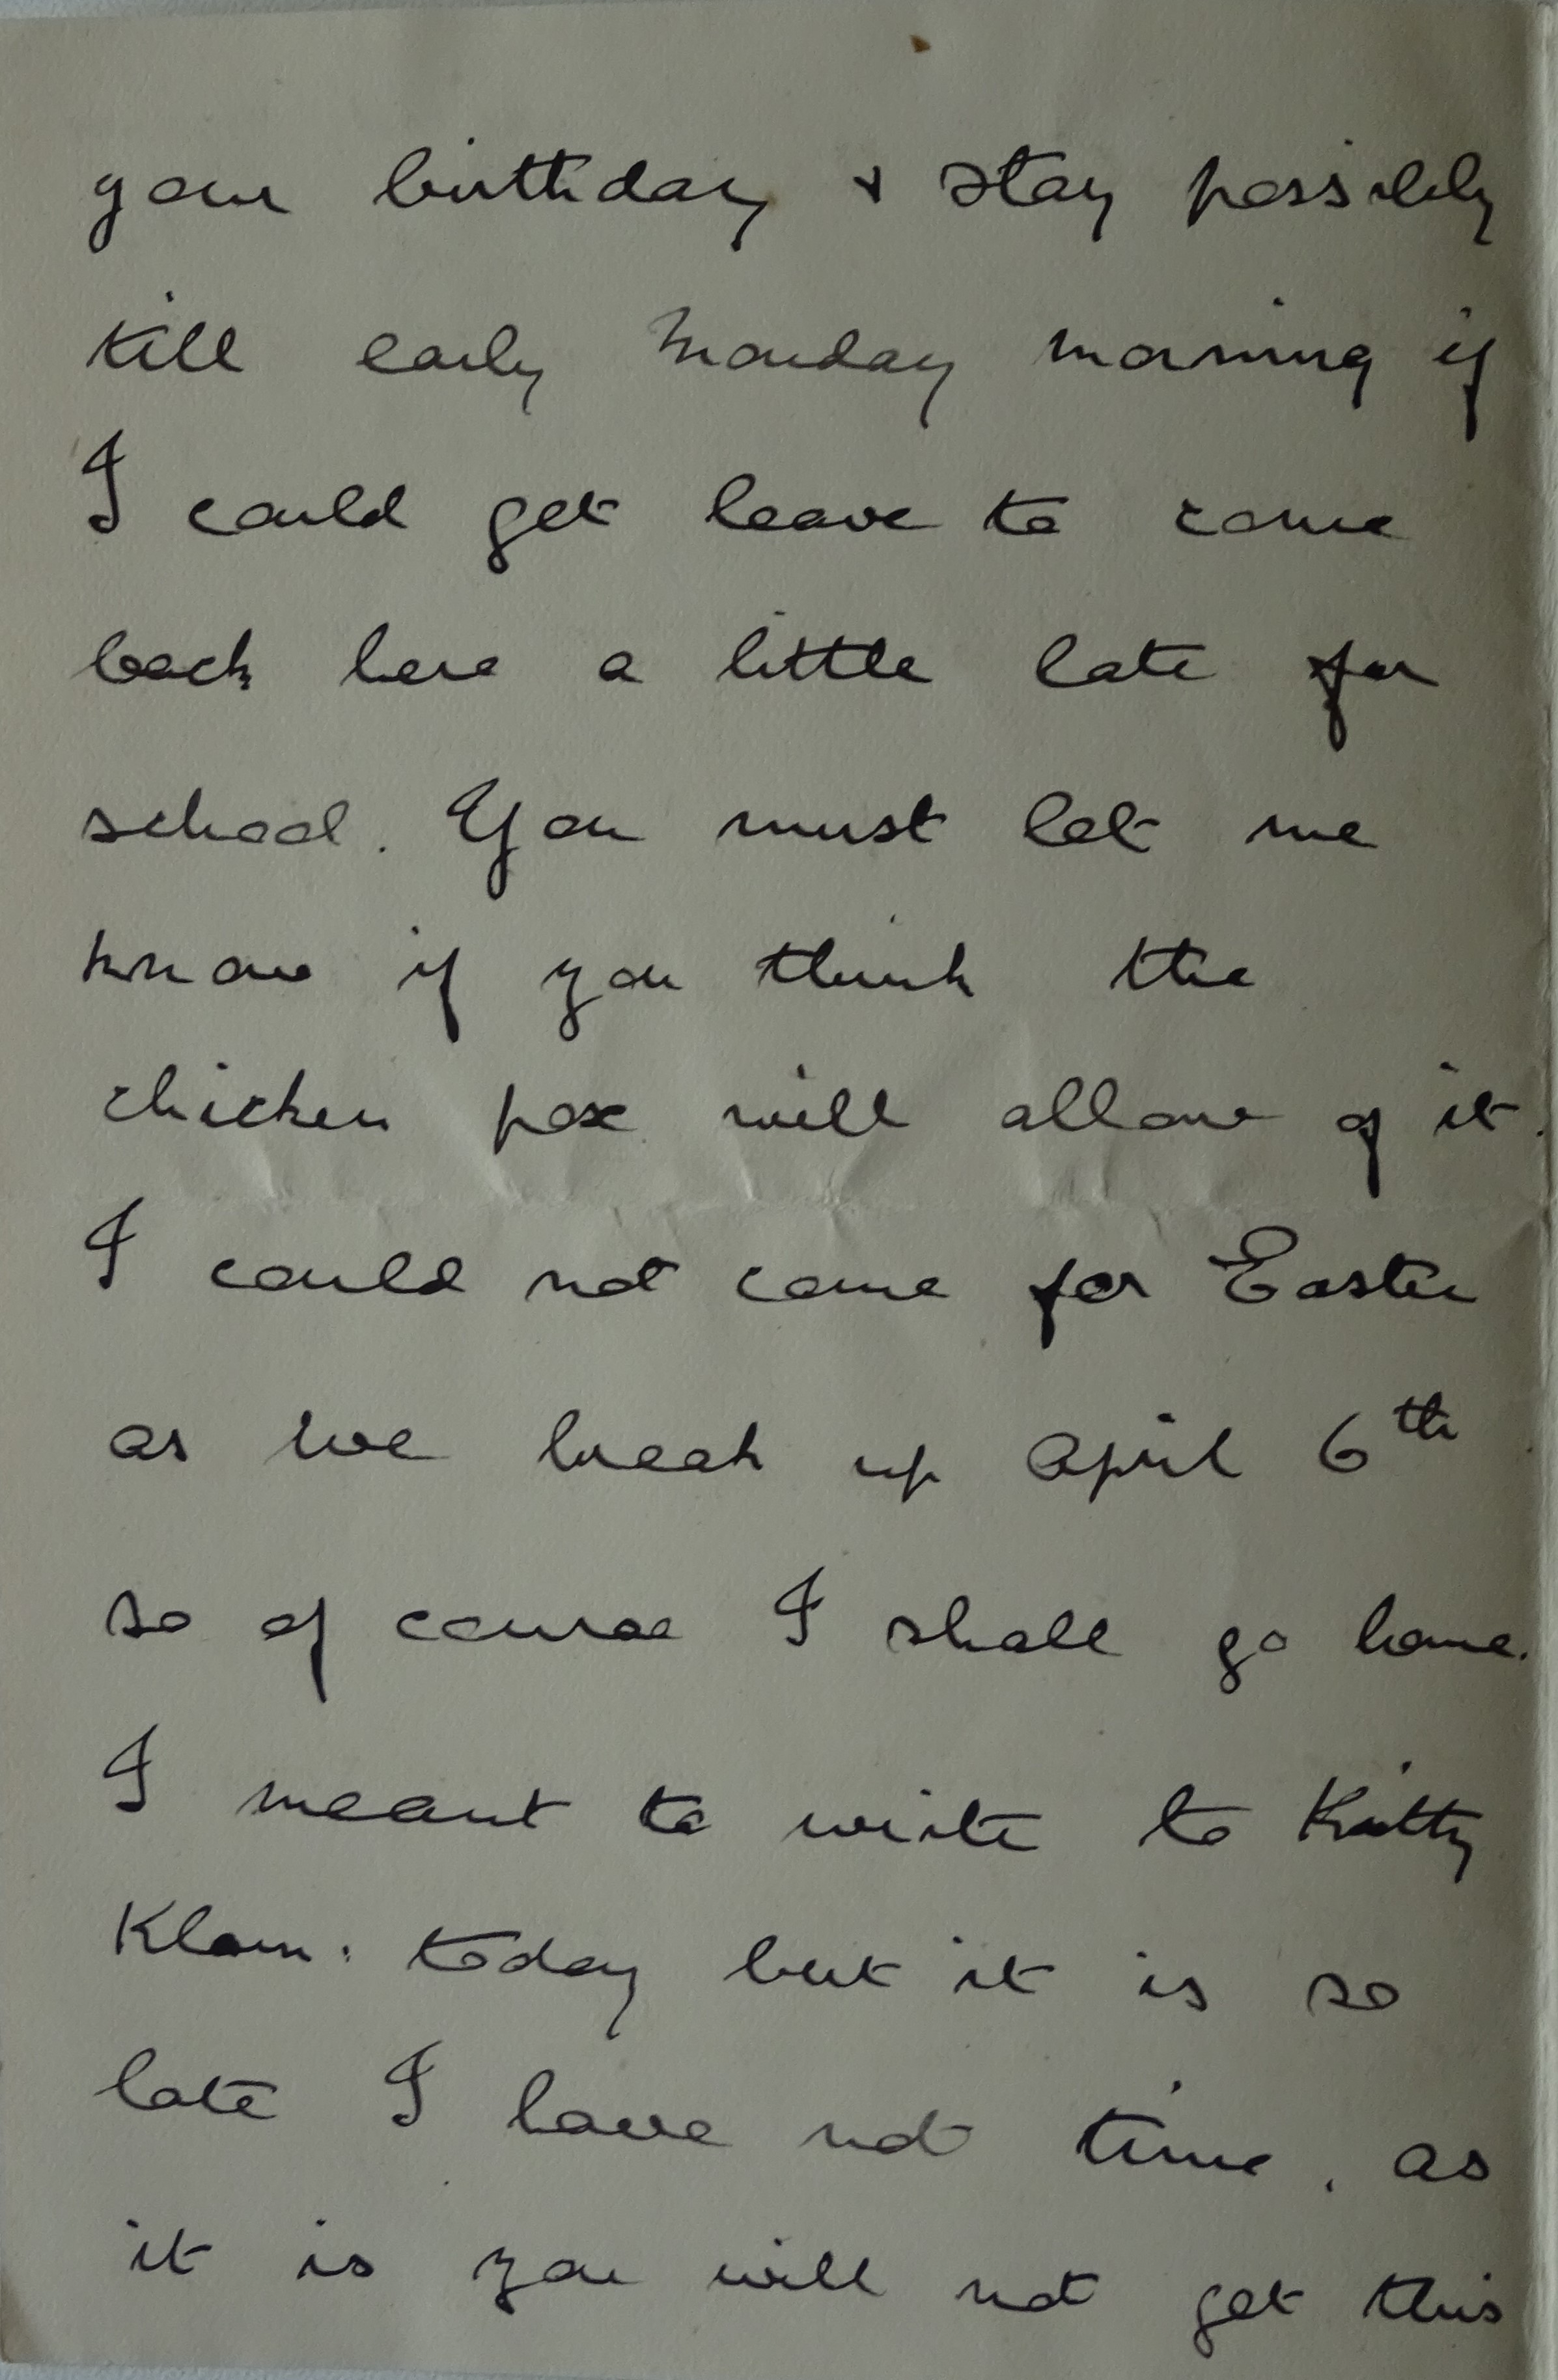 your birthday & stay possibly
till early Monday morning if
I could get leave to come
back here a little late for
school. You must let me
know if you think the
chicken pox will allow of it.
I could not come for Easter
as we break up April 6th
so of course I shall go home.
I meant to write to Kitty
today but it is so
late I have not time, as
it is you will not get this